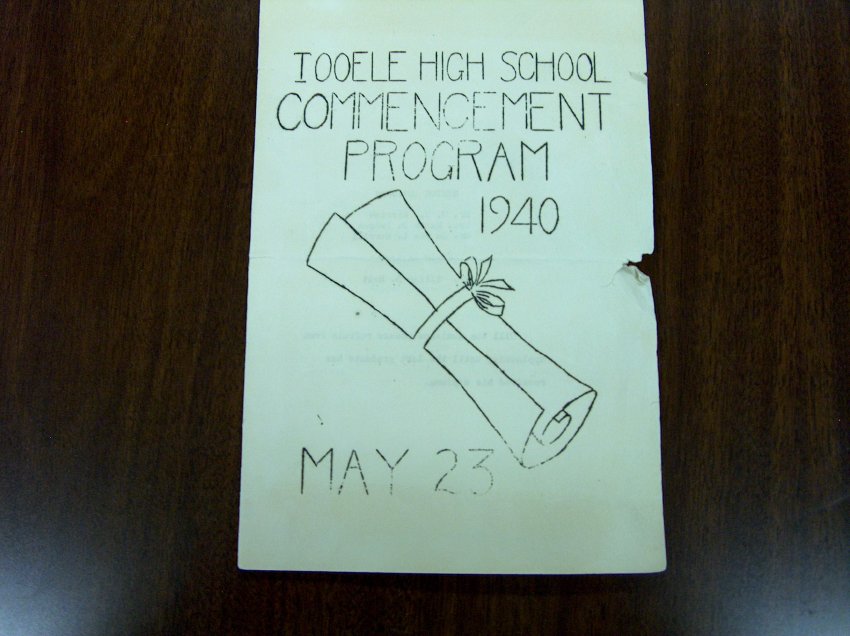 TOOELE HIGH SCHOOL
COMMENCEMENT
PROGRAM
1940
MAY 23